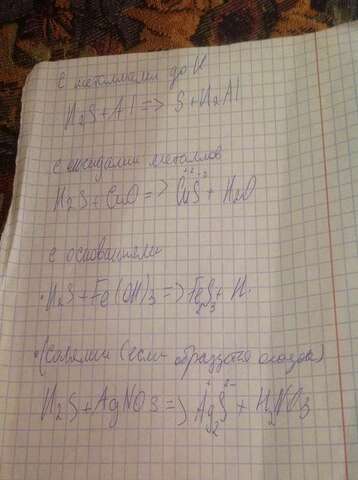 с металлами до H
H2S + Al => S + H2Al
с оксидами металлов
H2S + CuO => Cu+2S-2 + H2O
с основаниями
H2S + Fe(OH)3 => Fe2S3 + H
(солями (если образуется осадок)
H2S + AgNO3 => Ag2+S2- + HNO3